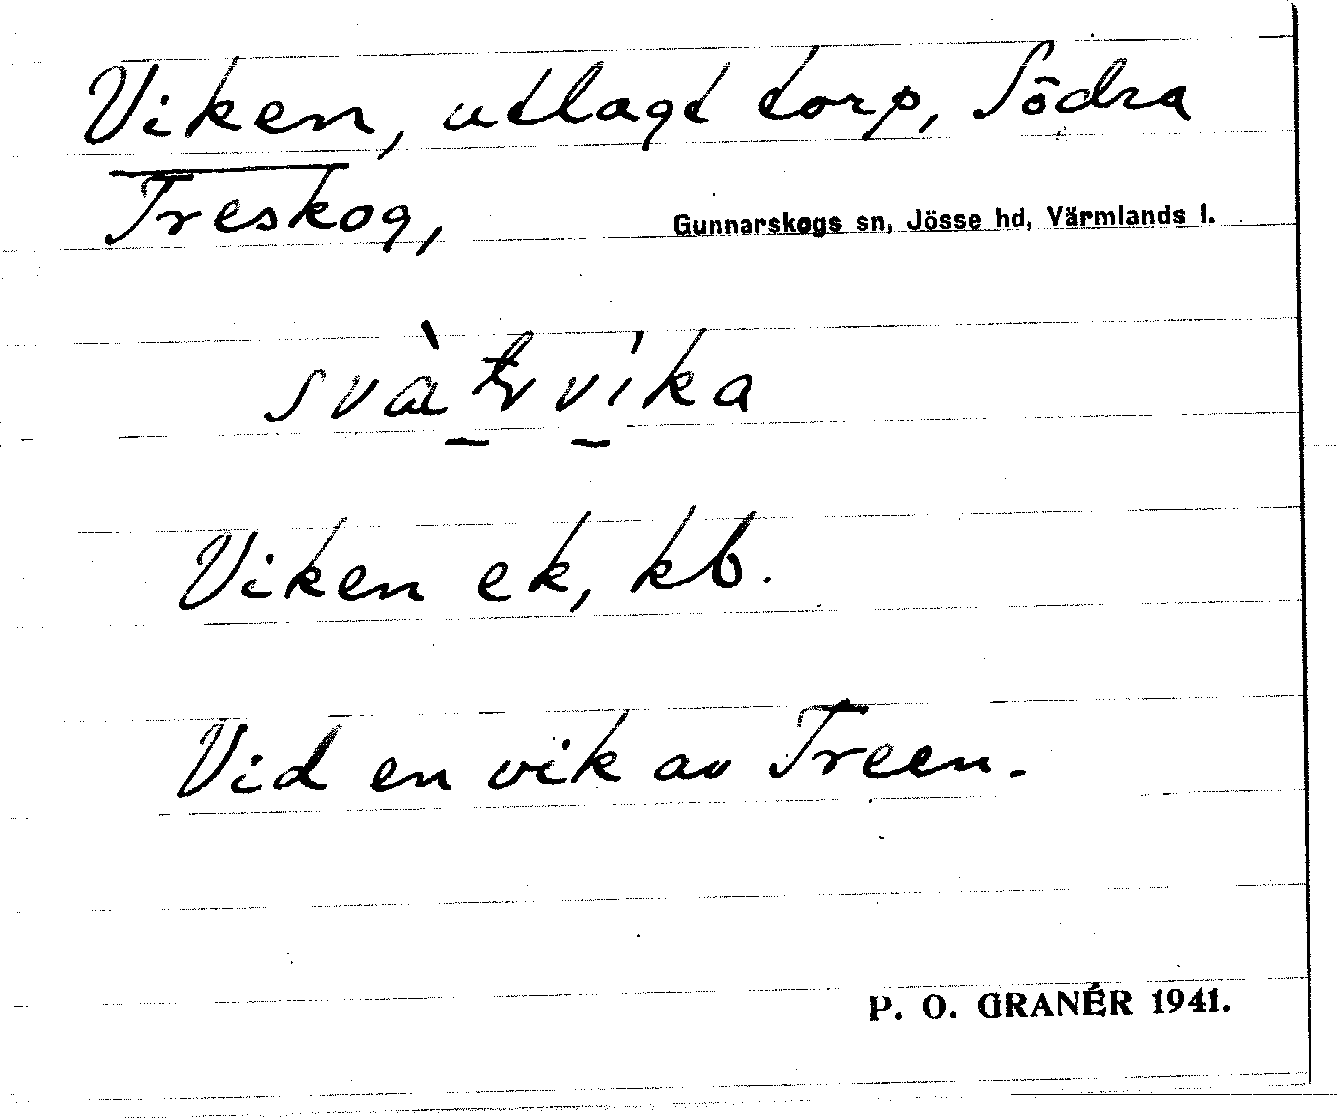 Viken, utlagt torp, Södra
Treskog,
Gunnarskogs sn, Jösse hd, Värmlands l.
Viken ek, kb.
Vid en vik av Treen.
P. O. GRANÉR 1941.